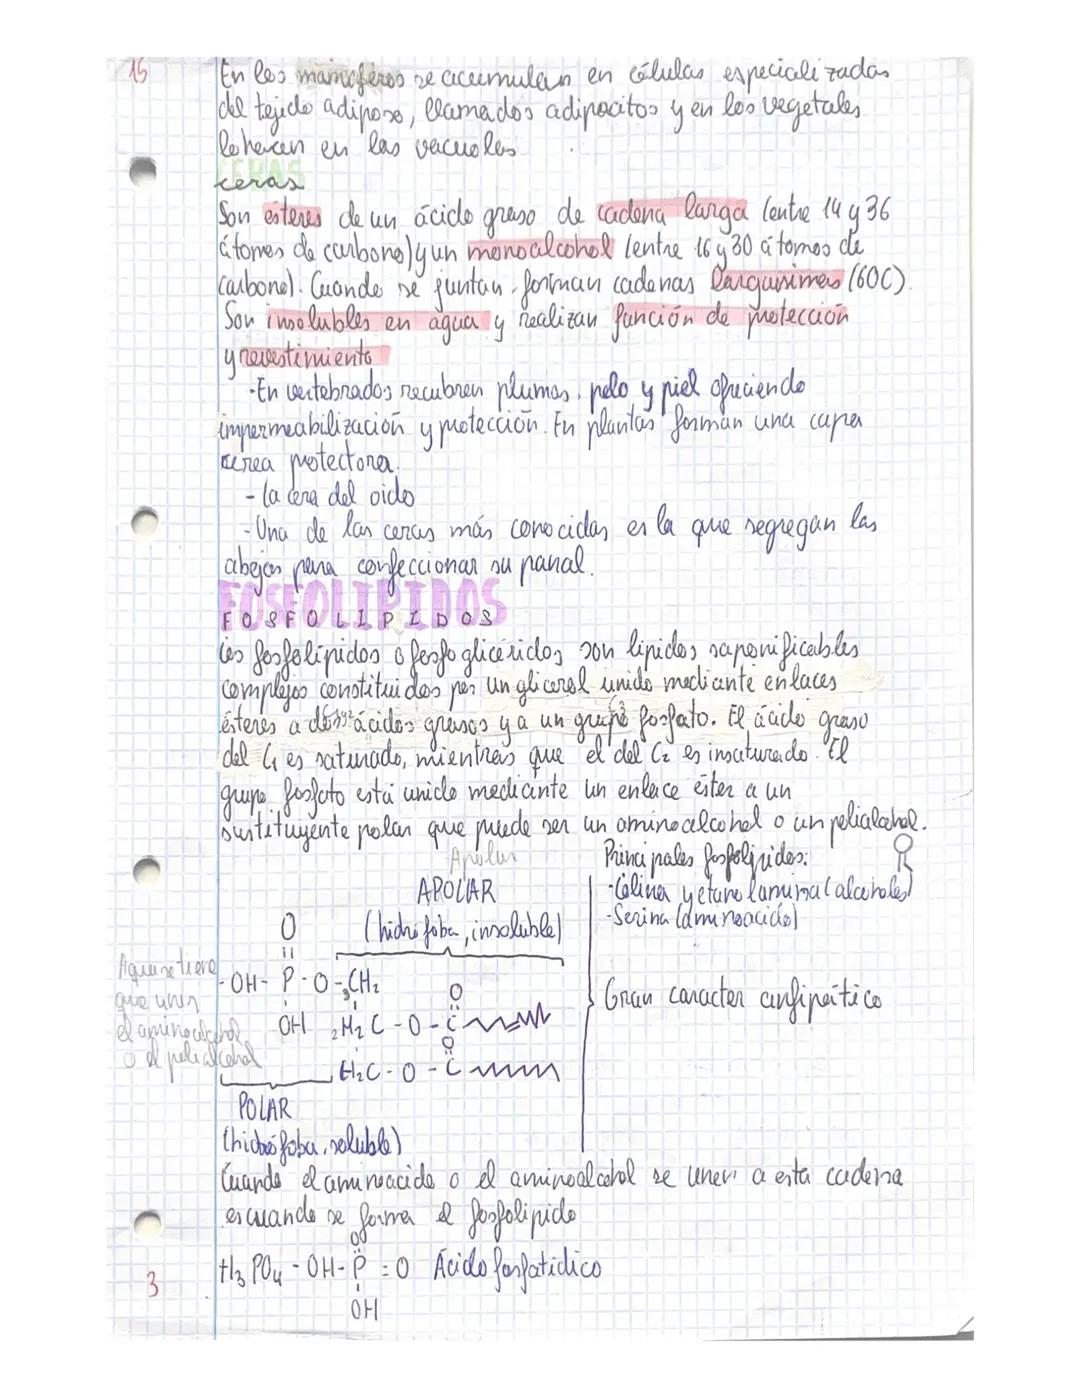 15
En los mamíferos se acumulan en células especializadas
del tejido adiposo, llamados adipocitos y en los vegetales
lo hacen en las vacuolas
CERAS
ceras
Son ésteres de un ácido graso de cadena larga (entre 14 y 36
átomos de carbono) y un monoalcohol (entre 16 y 30 átomos de
carbono). Cuando se juntan forman cadenas larguísimas (60C).
Son insolubles en agua y realizan función de protección
y revestimiento
·En vertebrados recubren plumas, pelo y piel ofreciendo
impermeabilización y protección. En plantas forman una capa
cérea protectora.
- la cera del oido
- Una de las ceras más conocidas es la que segregan las
abejas para confeccionar su panal.
FOSFOLIPIDOS
FOSFOLIPIDOS
Los fosfolípidos o fosfoglicéridos son lipidos saponificables
complejos constituidos por un glicerol unido mediante enlaces
ésteres a dos ácidos grasos y a un grupo fosfato. El ácido graso
del C1 es saturado, mientras que el del C2 es insaturado. El
grupo fosfato está unido mediante un enlace éster a un
sustituyente polar que puede ser un aminoalcohol o un polialcohol.
Apolar
APOLAR
(hidrófoba, insoluble)
Principales fosfolípidos:
·Colina y etanolamina (alcoholes)
-Serina (aminoácido)
Gran caracter anfipático
Aqui se tiene
que unir
el aminoalcohol
o el polialcohol
O
OH - P - O - 3CH2
OH
2H2C - O - C
O
H2C - O - C
O
POLAR
(hidrófoba, soluble)
Cuando el aminoacido o el aminoalcohol se unen a esta cadena
es cuando se forma el fosfolipido
O
H3PO4 - OH - P = O Ácido fosfatídico
OH
3